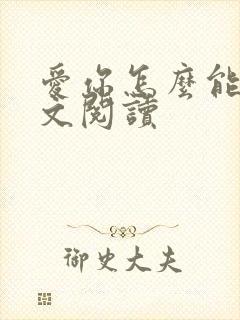 愛你怎麼能
文閱讀
御史大夫